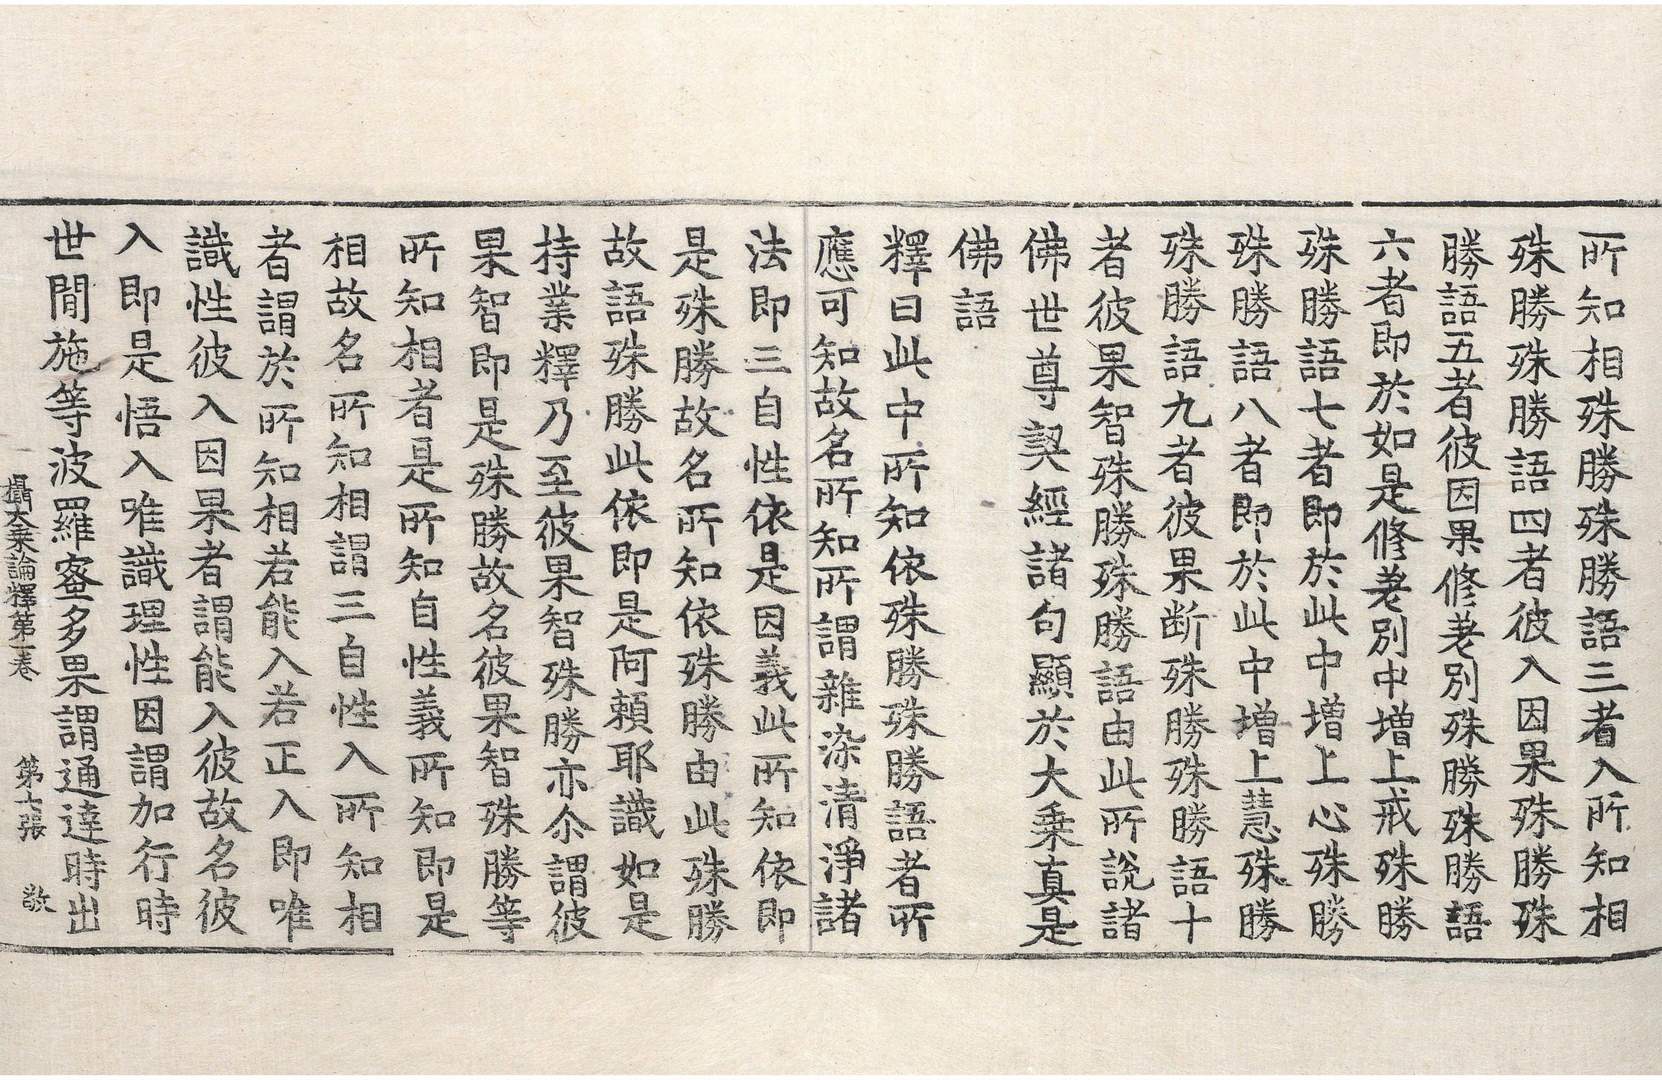 所知相殊勝殊勝語三者入所知相
殊勝殊勝語四者彼入因果殊勝殊
勝語五者彼因果修差別殊勝殊勝語
六者即於如是修差別中増上戒殊勝
殊勝語七者即於此中増上心殊勝
殊勝語八者即於此中増上慧殊勝
殊勝語九者彼果断殊勝殊勝語十
者彼果智殊勝殊勝語由此所說諸
佛世尊契經諸句顯於大乗真是
佛語
釋曰此中所知依殊勝殊勝語者所
應可知故名所知所謂雜染清淨諸
法即三自性依是因義此所知依即
是殊勝故名所知依殊勝由此殊勝
故語殊勝此依即是阿頼耶識如是
持業釋乃至彼果智殊勝亦尒謂彼
果智即是殊勝故名彼果智殊勝等
所知相者是所知自性義所知即是
相故名所知相謂三自性入所知相
者謂於所知相若能入若正入即唯
識性彼入因果者謂能入彼故名彼
入即是悟入唯識理性因謂加行時
世間施等波羅蜜多果謂通達時出
攝大乗論釋第一卷 第七張 敬